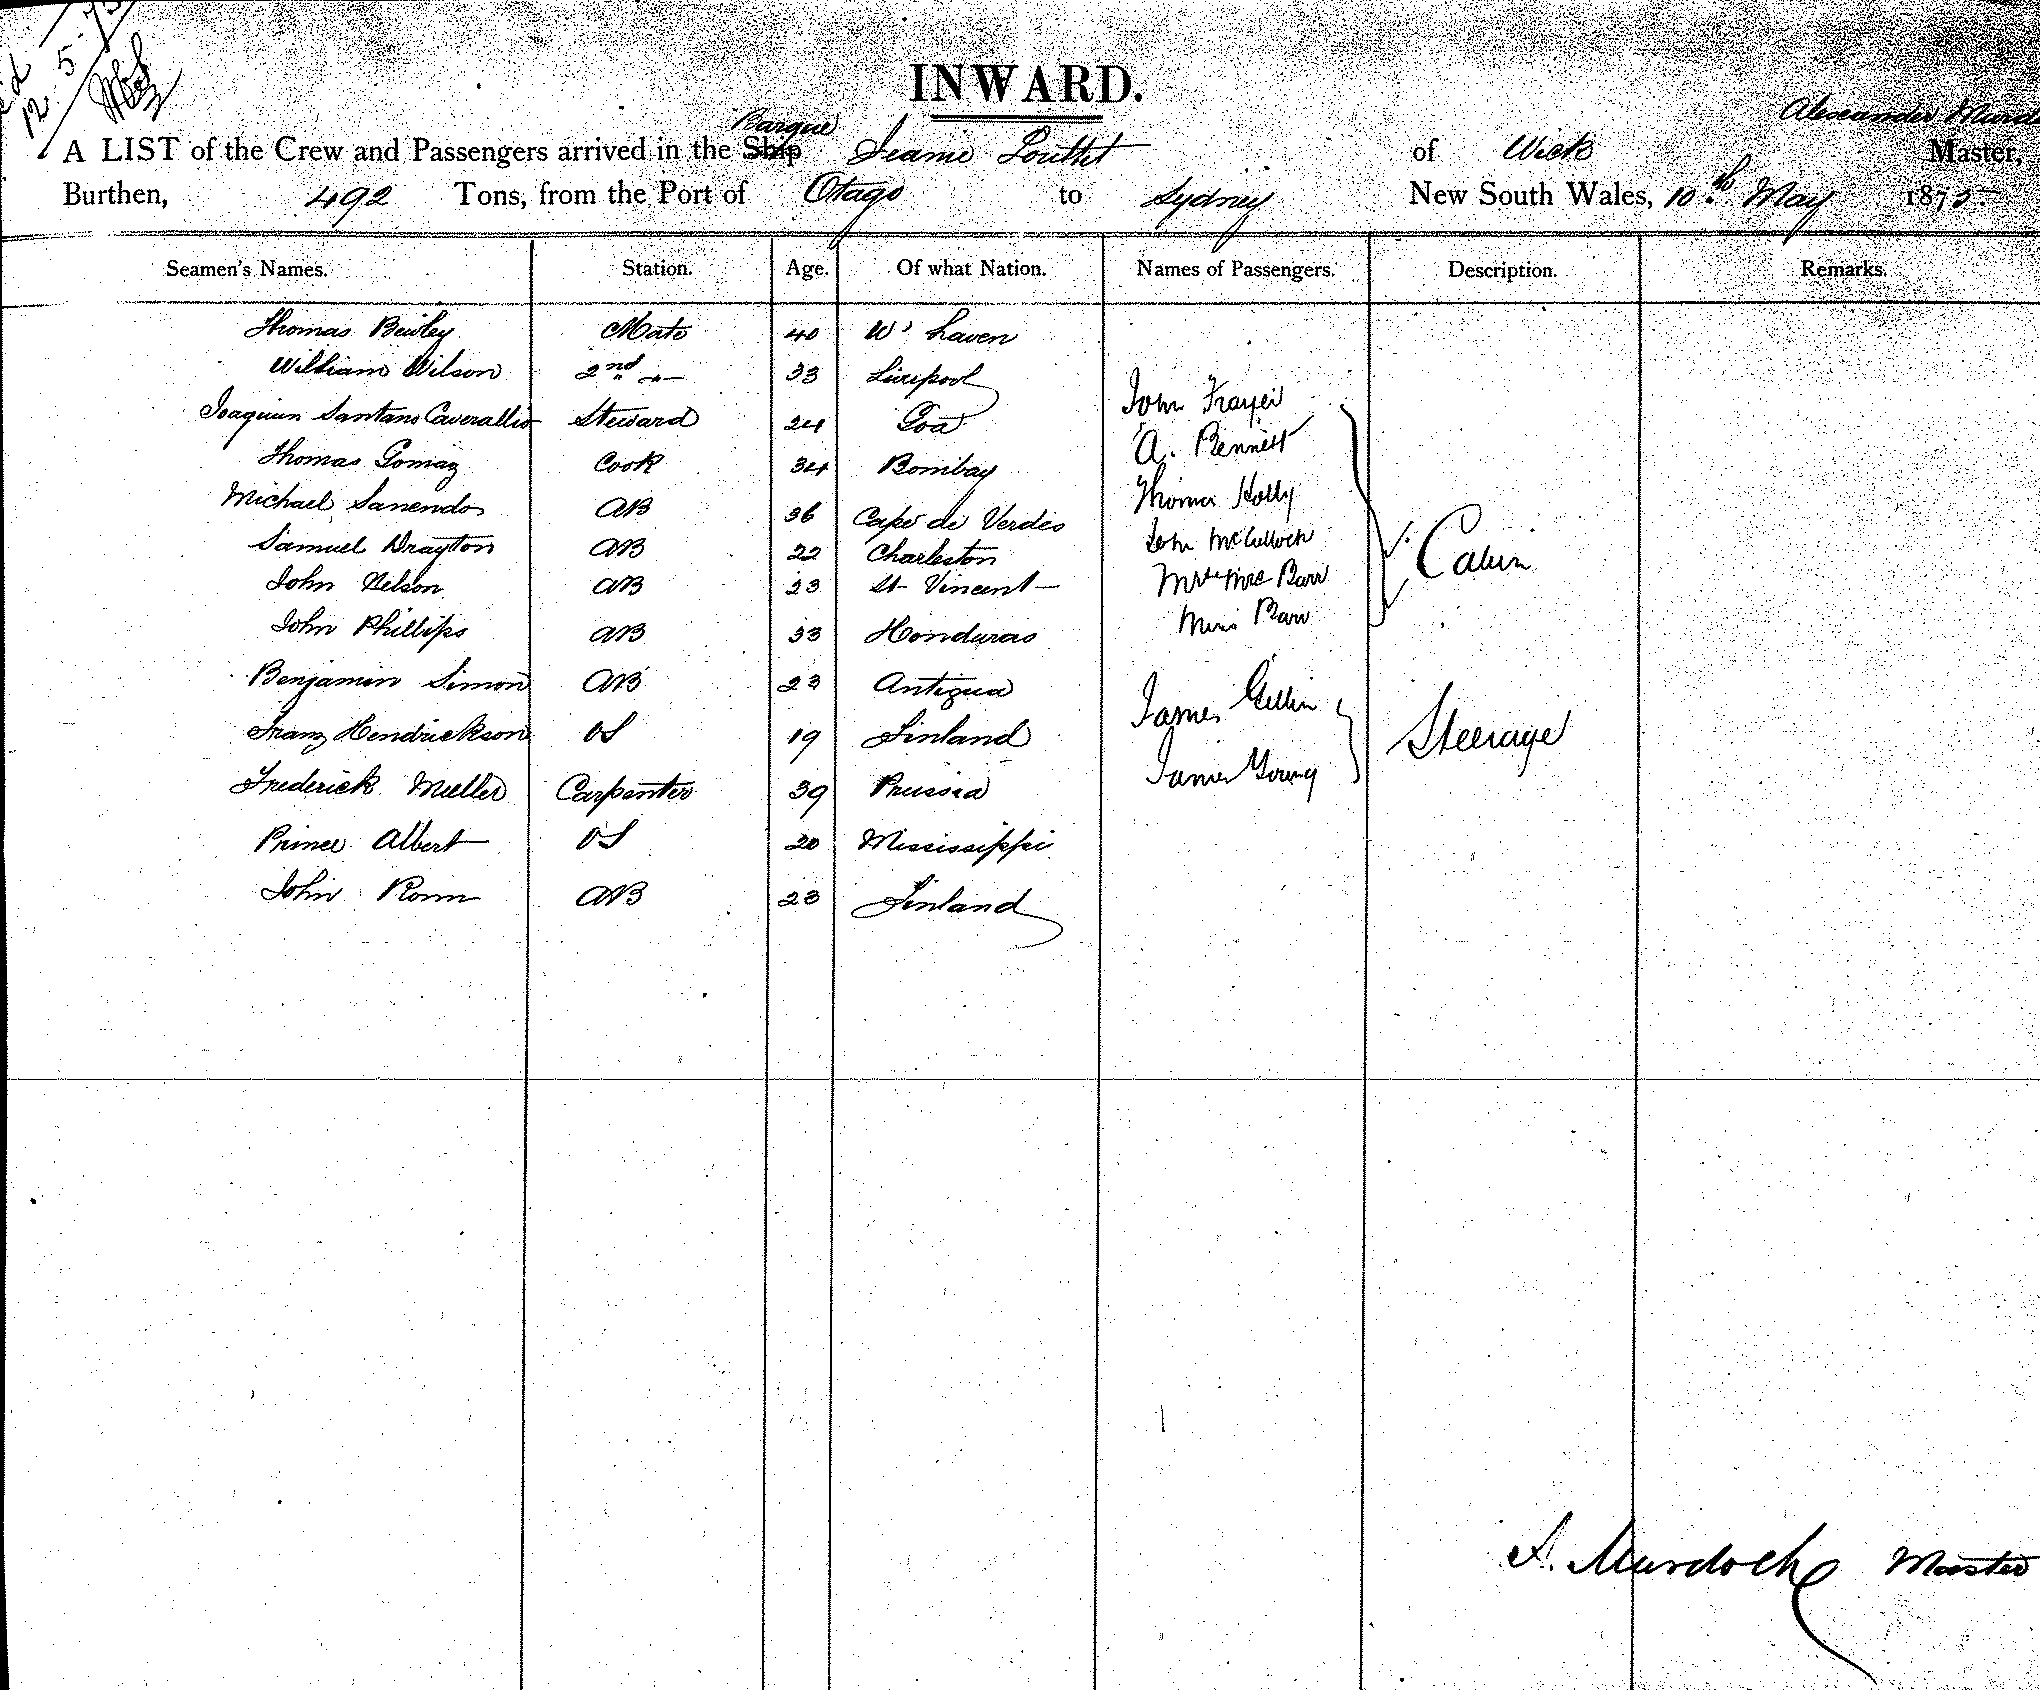 12. 5. 75
INWARD.
Alexander Murdo
A LIST of the Crew and Passengers arrived in the Ship Barque Jeanie Louttit of Wick Master,
Burthen, 492 Tons, from the Port of Otago to Sydney New South Wales, 10th May 1875
Seamen's Names. Station. Age. Of what Nation. Names of Passengers. Description. Remarks.
Thomas Bewley Mate 40 W'haven
William Wilson 2nd " 33 Liverpool
John Frayer
Joaquim Santano Caverallio Steward 24 Goa
A. Bennett
Thomas Gomaz Cook 34 Bombay
Thomas Holly
Michael Sanendos AB 36 Cape de Verdes
John McCulloch
Samuel Drayton AB 22 Charleston
Cabin
John Nelson AB 23 St Vincent
Mr & Mrs Barr
John Phillips AB 33 Honduras
Miss Barr
Benjamin Simon AB 23 Antigua
James Gillin
Franz Hendrickson OS 19 Finland
Steerage
James Young
Frederick Muller Carpenter 39 Prussia
Prince Albert OS 20 Mississippi
John Ronn AB 23 Finland
A. Murdoch Master